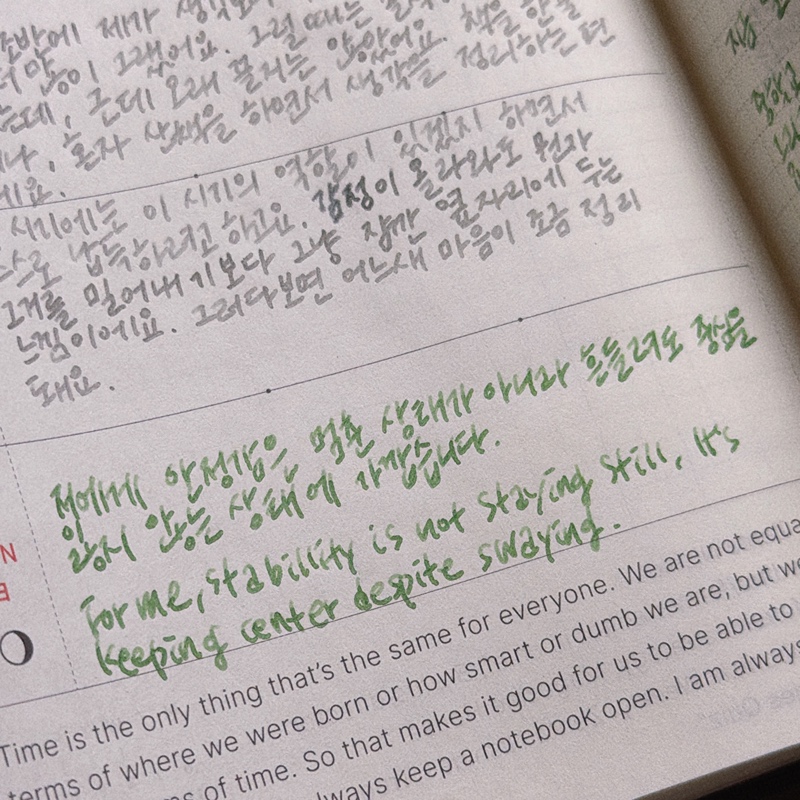 초반에 제가 생각보
마음이 그랬어요. 그럴 때는
는데, 근데 오래 끌지는 않았어요. 책을 한줄
나, 혼자 산책을 하면서 생각을 정리하는 편
예요.
시기에는 이 시기의 역할이 있겠지 하면서
스로 납득하려고 하고요. 감정이 올라와도 뭔가
그거를 밀어내기보다 그냥 잠깐 옆자리에 두는
느낌이에요. 그러다보면 어느새 마음이 조금 정리
돼요.
저에게 안정감은 멈춘 상태가 아니라 흔들려도 중심을
잃지 않는 상태에 가깝습니다.
For me, stabillity is not staying still, It's
keeping center despite swaying.
N
Time is the only thing that's the same for everyone. We are not equa
terms of where we were born or how smart or dumb we are, but we
ms of time. So that makes it good for us to be able to
lways keep a notebook open. I am always
지금